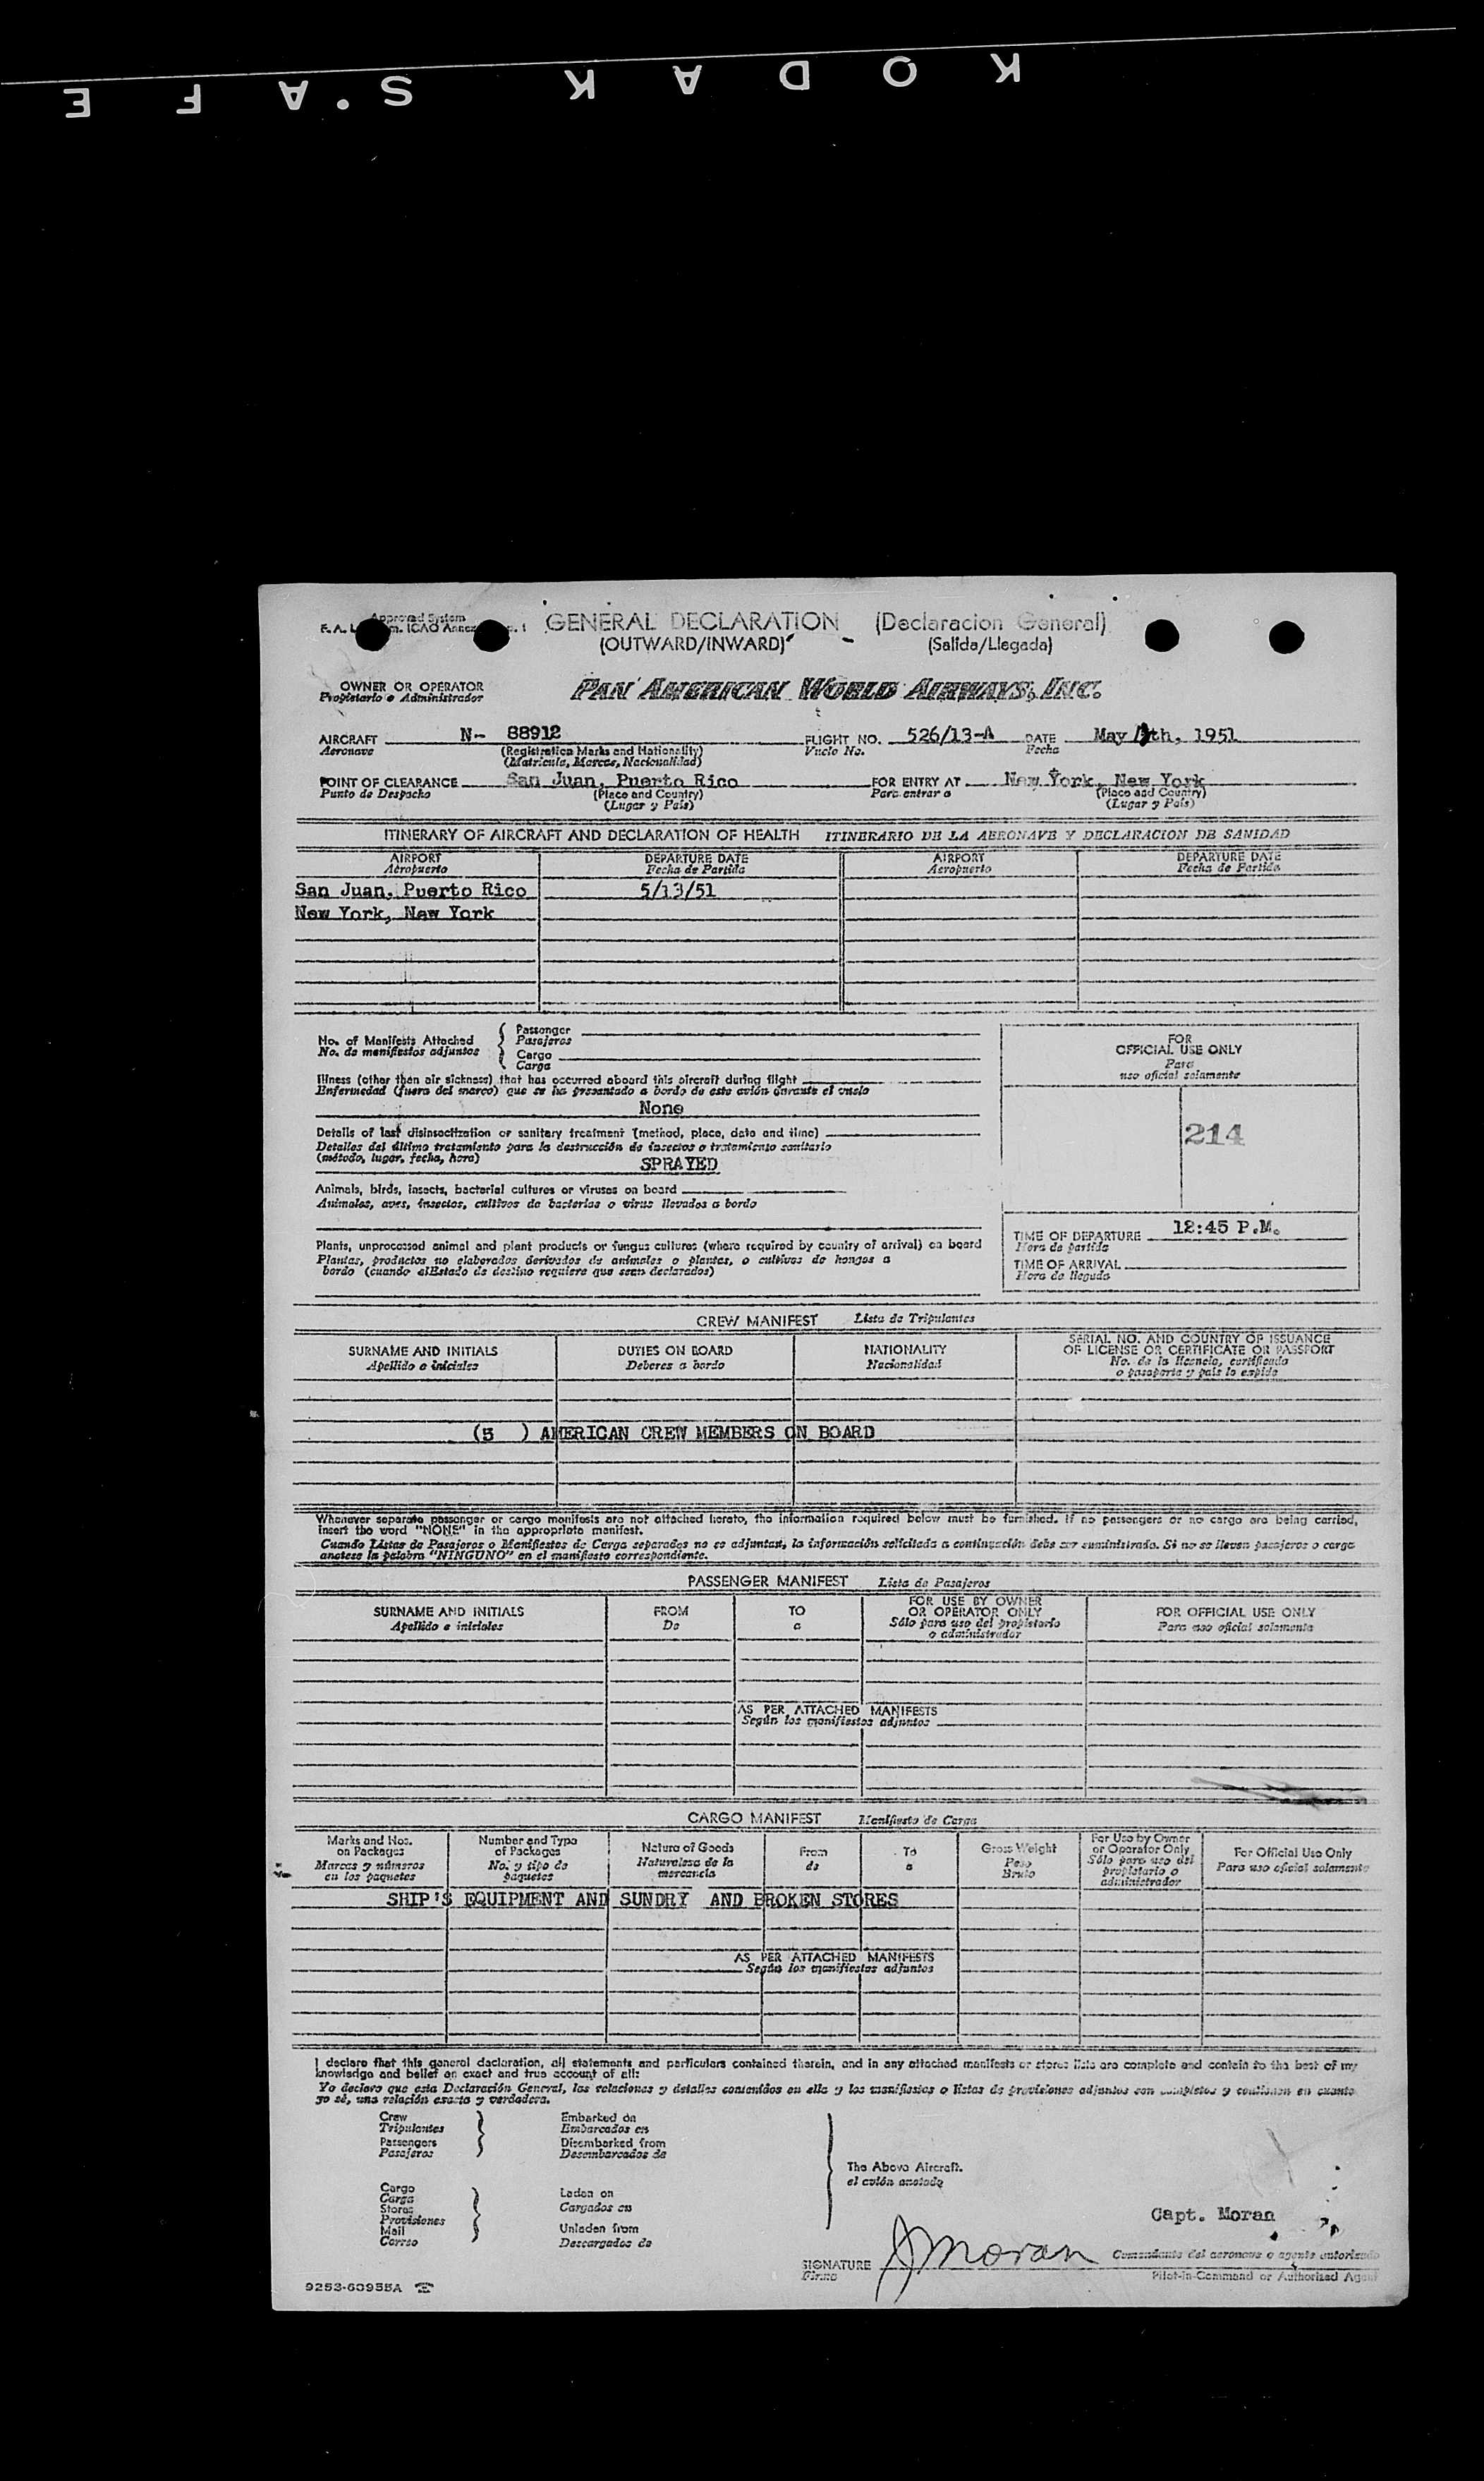 KODAK SAFE
Approved System
GENERAL DECLARATION (Declaracion General)
(OUTWARD/INWARD) (Salida/Llegada)
OWNER OR OPERATOR PAN AMERICAN WORLD AIRWAYS, INC.
Propietario o Administrador
AIRCRAFT N- 88912 FLIGHT NO. 526/13-A DATE May th, 1951
Aeronave (Registration Marks and Nationality) Vuelo No. Fecha
(Matricula, Marcas, Nacionalidad)
POINT OF CLEARANCE San Juan, Puerto Rico FOR ENTRY AT New York, New York
Punto de Despacho (Place and Country) Para entrar a (Place and Country)
(Lugar y País) (Lugar y País)
ITINERARY OF AIRCRAFT AND DECLARATION OF HEALTH ITINERARIO DE LA AERONAVE Y DECLARACION DE SANIDAD
AIRPORT DEPARTURE DATE AIRPORT DEPARTURE DATE
Aeropuerto Fecha de Partida Aeropuerto Fecha de Partida
San Juan, Puerto Rico 5/13/51
New York, New York
No. of Manifests Attached Passenger
No. de manifiestos adjuntos Pasajeros
Cargo
Carga
Illness (other than air sickness) that has occurred aboard this aircraft during flight
Enfermedad (fuera del mareo) que se ha presentado a bordo de este avión durante el vuelo
None
Details of last disinsectization or sanitary treatment (method, place, date and time)
Detalles del último tratamiento para la destrucción de insectos o tratamiento sanitario
(método, lugar, fecha, hora)
SPRAYED
Animals, birds, insects, bacterial cultures or viruses on board
Animales, aves, insectos, cultivos de bacterias o virus llevados a bordo
Plants, unprocessed animal and plant products or fungus cultures (where required by country of arrival) on board
Plantas, productos no elaborados derivados de animales o plantas, o cultivos de hongos a
bordo (cuando elEstado de destino requiere que sean declarados)
FOR
OFFICIAL USE ONLY
Para
uso oficial solamente
214
TIME OF DEPARTURE 12:45 P.M.
Hora de partida
TIME OF ARRIVAL
Hora de llegada
CREW MANIFEST Lista de Tripulantes
SURNAME AND INITIALS DUTIES ON BOARD NATIONALITY SERIAL NO. AND COUNTRY OF ISSUANCE
OF LICENSE OR CERTIFICATE OR PASSPORT
Apellido e iniciales Deberes a bordo Nacionalidad No. de la licencia, certificado
o pasaporte y país lo expide
(5 ) AMERICAN CREW MEMBERS ON BOARD
Whenever separate passenger or cargo manifests are not attached hereto, the information required below must be furnished. If no passengers or no cargo are being carried,
insert the word "NONE" in the appropriate manifest.
Cuando Listas de Pasajeros o Manifiestos de Carga separados no se adjuntan, la información solicitada a continuación debe ser suministrada. Si no se llevan pasajeros o carga
anotese la palabra "NINGUNO" en el manifiesto correspondiente.
PASSENGER MANIFEST Lista de Pasajeros
SURNAME AND INITIALS FROM TO FOR USE BY OWNER OR OPERATOR ONLY FOR OFFICIAL USE ONLY
Apellido e iniciales De a Sólo para uso del propietario o administrador Para uso oficial solamente
AS PER ATTACHED MANIFESTS
Según los manifiestos adjuntos
CARGO MANIFEST Manifiesto de Carga
Marks and Nos. on Packages Number and Type of Packages Nature of Goods From To Gross Weight For Use by Owner or Operator Only For Official Use Only
Marcas y números en los paquetes No. y tipo de paquetes Naturaleza de la mercancia de a Peso Bruto Sólo para uso del propietario o administrador Para uso oficial solamente
SHIP'S EQUIPMENT AND SUNDRY AND BROKEN STORES
AS PER ATTACHED MANIFESTS
Según los manifiestos adjuntos
I declare that this general declaration, all statements and particulars contained therein, and in any attached manifests or stores lists are complete and contain to the best of my
knowledge and belief an exact and true account of all:
Yo declaro que esta Declaración General, las relaciones y detalles contenidos en ella y los manifiestos o listas de provisiones adjuntos son completos y contienen en cuanto
yo sé, una relación exacta y verdadera.
Crew Embarked on
Tripulantes Embarcados en
Passengers Disembarked from
Pasajeros Desembarcados de
The Above Aircraft.
el avión anotado
Cargo Laden on
Carga Cargados en
Stores
Provisiones
Mail Unladen from
Correo Descargados de
Capt. Moran
SIGNATURE J Moran Comandante del aeronave o agente autorizado
Firma Pilot-in-Command or Authorized Agent
9253-60955A